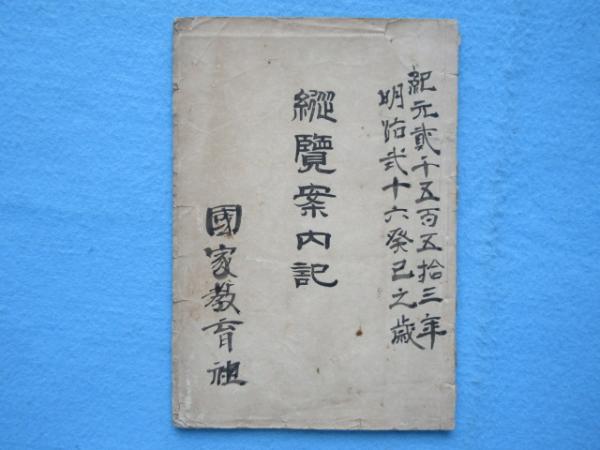 紀元貳千五百五拾三年
明治弐十六癸巳之歳
縱覽案内記
國家教育祖